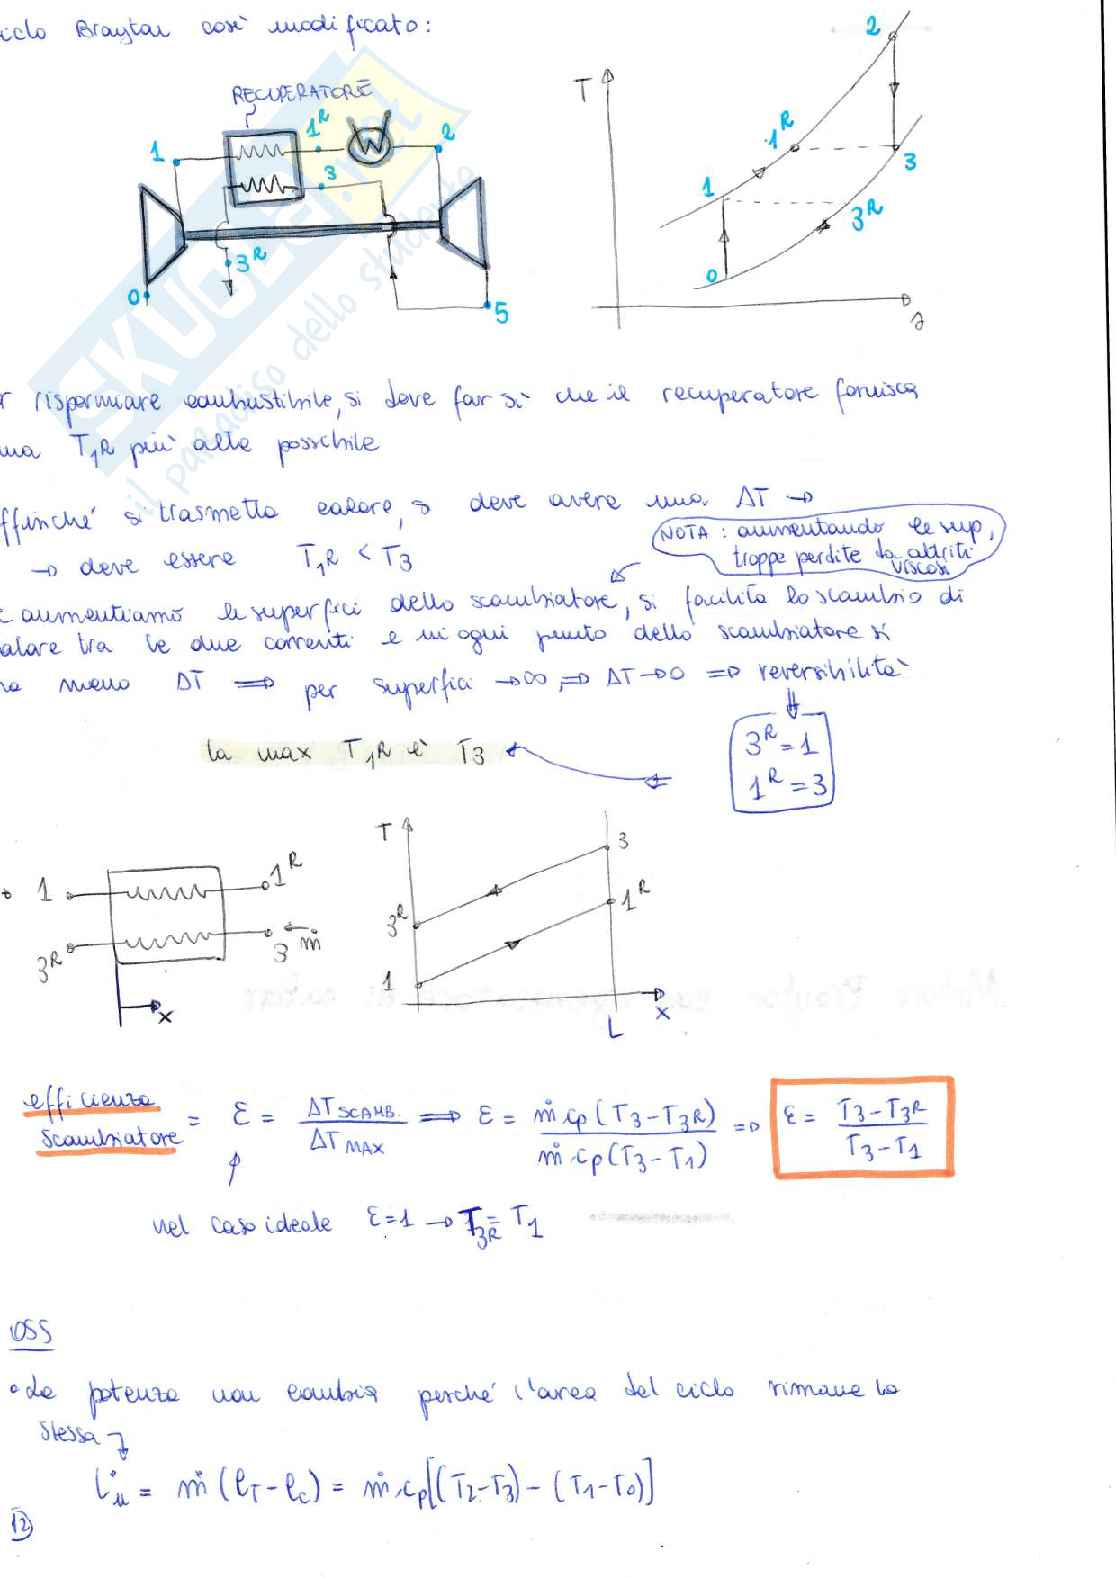 iclo Brayton così modificato:
RECUPERATORE
1
1R
2
3
3R
0
5
T
2
1R
3
1
3R
0
s
r risparmiare combustibile, si deve far sì che il recuperatore fornisca
una T1R più alta possibile
ffinché si trasmetta calore, si deve avere una ΔT →
→ deve essere T1R < T3
NOTA: aumentando le sup,
troppe perdite da attriti
viscosi
aumentiamo le superfici dello scambiatore, si facilita lo scambio di
alore tra le due correnti e in ogni punto dello scambiatore si
ha meno ΔT ⇒ per superfici →∞, ⇒ ΔT→0 ⇒ reversibilità
3R = 1
1R = 3
la max T1R è T3
1
1R
3R
3
ṁ
x
T
3
1R
3R
1
L
x
efficienza
scambiatore
= ε = ΔTSCAMB. / ΔTMAX ⇒ ε = ṁ cp (T3 - T3R) / ṁ cp (T3 - T1) ⇒ ε = T3 - T3R / T3 - T1
nel caso ideale ε=1 → T3R = T1
OSS
• La potenza non cambia perché l'area del ciclo rimane la
stessa
L̇u = ṁ (lT - lc) = ṁ cp[(T2-T3) - (T1-T0)]
12
SKUOLA.net
il paradiso dello studente